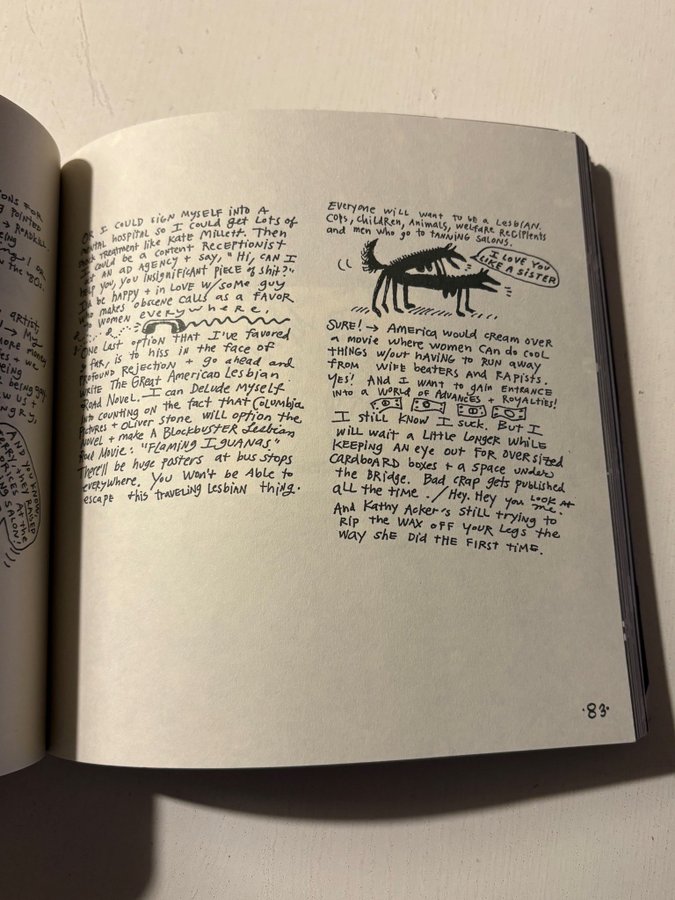 ONS FOR
POINTED
→ ROADKILL
OR
THE '80s.
ARTIST,
→ My
MORE MONEY
+ WE
BEING
BEING GAY.
W US +
NGRY,
AND YOU KNOW
THEY RAISED
PRICES AT THE
SALON!
OR I COULD SIGN MYSELF INTO A
MENTAL HOSPITAL SO I COULD GET LOTS OF
TREATMENT LIKE KATE MILLETT. Then
I COULD BE A CONTENT RECEPTIONIST
AT AN AD AGENCY + SAY, "Hi, CAN I
help you, you insignificant piece of shit?"
I'd be happy + in love w/some guy
who makes obscene calls as a favor
to women everywhere.
One last option that I've favored
so far, is to hiss in the face of
profound rejection + go ahead and
write The Great American Lesbian
Road Novel. I can delude myself
into counting on the fact that Columbia
Pictures + Oliver Stone will option the
novel + make a Blockbuster Lesbian
Road Movie: "Flaming Iguanas"
There'll be huge posters at bus stops
everywhere. You won't be able to
escape this traveling lesbian thing.
Everyone will want to be a lesbian.
Cops, children, animals, welfare recipients
and men who go to tanning salons.
I LOVE YOU
LIKE A SISTER
SURE! → America would cream over
a movie where women can do cool
things w/out having to run away
from wife beaters and rapists.
Yes! And I want to gain entrance
into a world of advances + royalties!
I still know I suck. But I
will wait a little longer while
keeping an eye out for oversized
cardboard boxes + a space under
the bridge. Bad crap gets published
all the time. / Hey. Hey you look at me.
And Kathy Acker's still trying to
rip the wax off your legs the
way she did the first time.
·83·